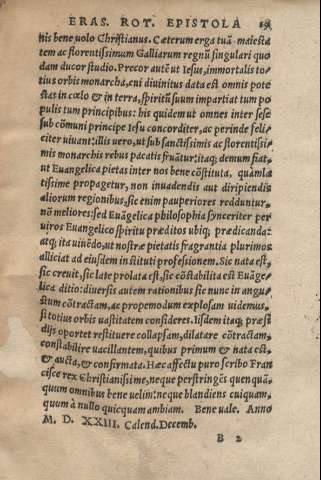 ERAS. ROT. EPISTOLA 19
nis bene uolo Christianus. Cæterum erga tuã maiesta
tem ac florentissimum Galliarum regnũ singulari quo
dam ducor studio. Precor autẽ ut Iesus, immortalis to
tius orbis monarcha, cui diuinitus data est omnis pote
stas in cœlo & in terra, spiritũ suum impartiat tum po
pulis tum principibus: his quidem ut omnes inter sese
sub cõmuni principe Iesu concorditer, ac perinde feli-
citer uiuant: illis uero, ut sub sanctissimis ac florentissi-
mis monarchis rebus pacatis fruãtur: itaq; demum fiat,
ut Euangelica pietas inter nos bene cõstituta, quàmla
tissime propagetur, non inuadendis aut diripiendis
aliorum regionibus, sic enim pauperiores redduntur,
nõ meliores: sed Euãgelica philosophia synceriter per
uiros Euangelico spiritu præditos ubiq; prædicanda:
atq; ita uiuẽdo, ut nostræ pietatis fragrantia plurimos
alliciat ad eiusdem instituti professionem. Sic nata est,
sic creuit, sic late prolata est, sic cõstabilita est Euãge-
lica ditio: diuersis autem rationibus sic nunc in angu-
stum cõtractam, ac propemodum explosam uidemus,
si totius orbis uastitatem consideres. Iisdem itaq; præsi
dijs oportet restituere collapsam, dilatare cõtractam,
constabilire uacillantem, quibus primum & nata est,
& aucta, & confirmata. Hæc affectu puro scribo Fran
cisce rex Christianissime, neque perstringẽs quenquã,
quum omnibus bene uelim: neque blandiens cuiquam,
quum à nullo quicquam ambiam. Bene uale. Anno
M. D. XXIII. Calend. Decemb.
B 2